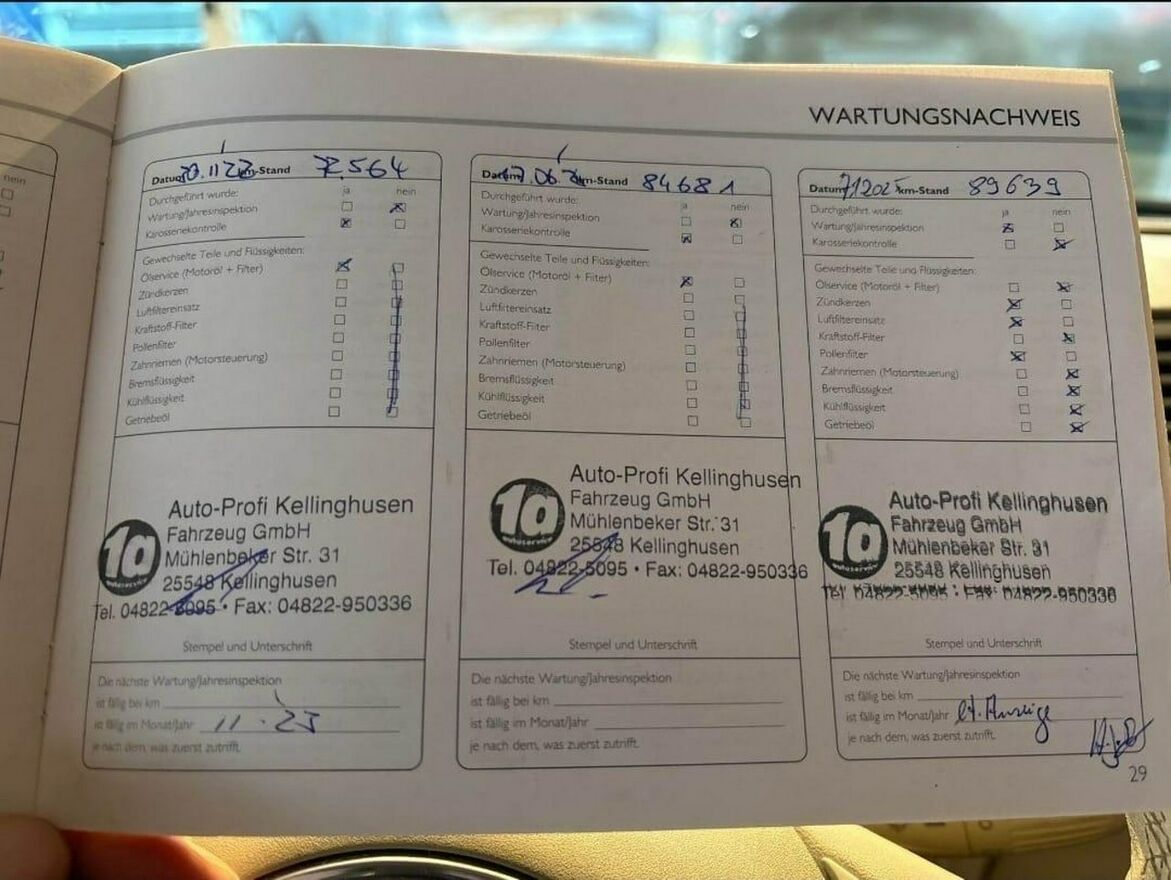 nein
WARTUNGSNACHWEIS
Datum 30.11 22 km-Stand 72564
Durchgeführt wurde: ja nein
Wartung/Jahresinspektion
Karosseriekontrolle
Gewechselte Teile und Flüssigkeiten:
Ölservice (Motoröl + Filter)
Zündkerzen
Luftfiltereinsatz
Kraftstoff-Filter
Pollenfilter
Zahnriemen (Motorsteuerung)
Bremsflüssigkeit
Kühlflüssigkeit
Getriebeöl
1a autoservice
Auto-Profi Kellinghusen
Fahrzeug GmbH
Mühlenbeker Str. 31
25548 Kellinghusen
Tel. 04822-5095 • Fax: 04822-950336
Stempel und Unterschrift
Die nächste Wartung/Jahresinspektion
ist fällig bei km
ist fällig im Monat/Jahr 11.23
je nach dem, was zuerst zutrifft.
Datum .06. km-Stand 84681
Durchgeführt wurde: ja nein
Wartung/Jahresinspektion
Karosseriekontrolle
Gewechselte Teile und Flüssigkeiten:
Ölservice (Motoröl + Filter)
Zündkerzen
Luftfiltereinsatz
Kraftstoff-Filter
Pollenfilter
Zahnriemen (Motorsteuerung)
Bremsflüssigkeit
Kühlflüssigkeit
Getriebeöl
1a autoservice
Auto-Profi Kellinghusen
Fahrzeug GmbH
Mühlenbeker Str. 31
25548 Kellinghusen
Tel. 04822-5095 • Fax: 04822-950336
Stempel und Unterschrift
Die nächste Wartung/Jahresinspektion
ist fällig bei km
ist fällig im Monat/Jahr
je nach dem, was zuerst zutrifft.
Datum km-Stand 89639
Durchgeführt wurde: ja nein
Wartung/Jahresinspektion
Karosseriekontrolle
Gewechselte Teile und Flüssigkeiten:
Ölservice (Motoröl + Filter)
Zündkerzen
Luftfiltereinsatz
Kraftstoff-Filter
Pollenfilter
Zahnriemen (Motorsteuerung)
Bremsflüssigkeit
Kühlflüssigkeit
Getriebeöl
1a autoservice
Auto-Profi Kellinghusen
Fahrzeug GmbH
Mühlenbeker Str. 31
25548 Kellinghusen
Tel. 04822-5095 • Fax: 04822-950336
Stempel und Unterschrift
Die nächste Wartung/Jahresinspektion
ist fällig bei km
ist fällig im Monat/Jahr lt. Anzeige
je nach dem, was zuerst zutrifft.
29